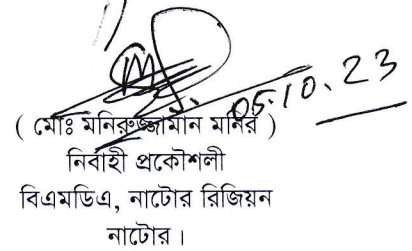 05.10.23
( মোঃ মনিরুজ্জামান মনির )
নির্বাহী প্রকৌশলী
বিএমডিএ, নাটোর রিজিয়ন
নাটোর।